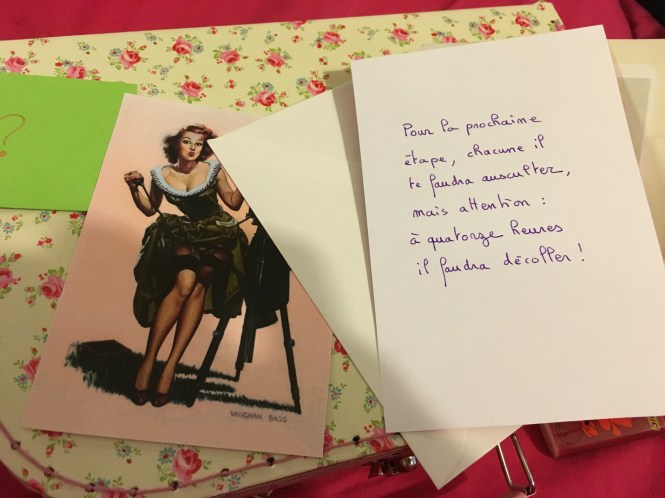 ?
VAUGHAN BASS
Pour la prochaine
étape, chacune il
te faudra ausculter,
mais attention :
à quatorze heures
il faudra décoller !